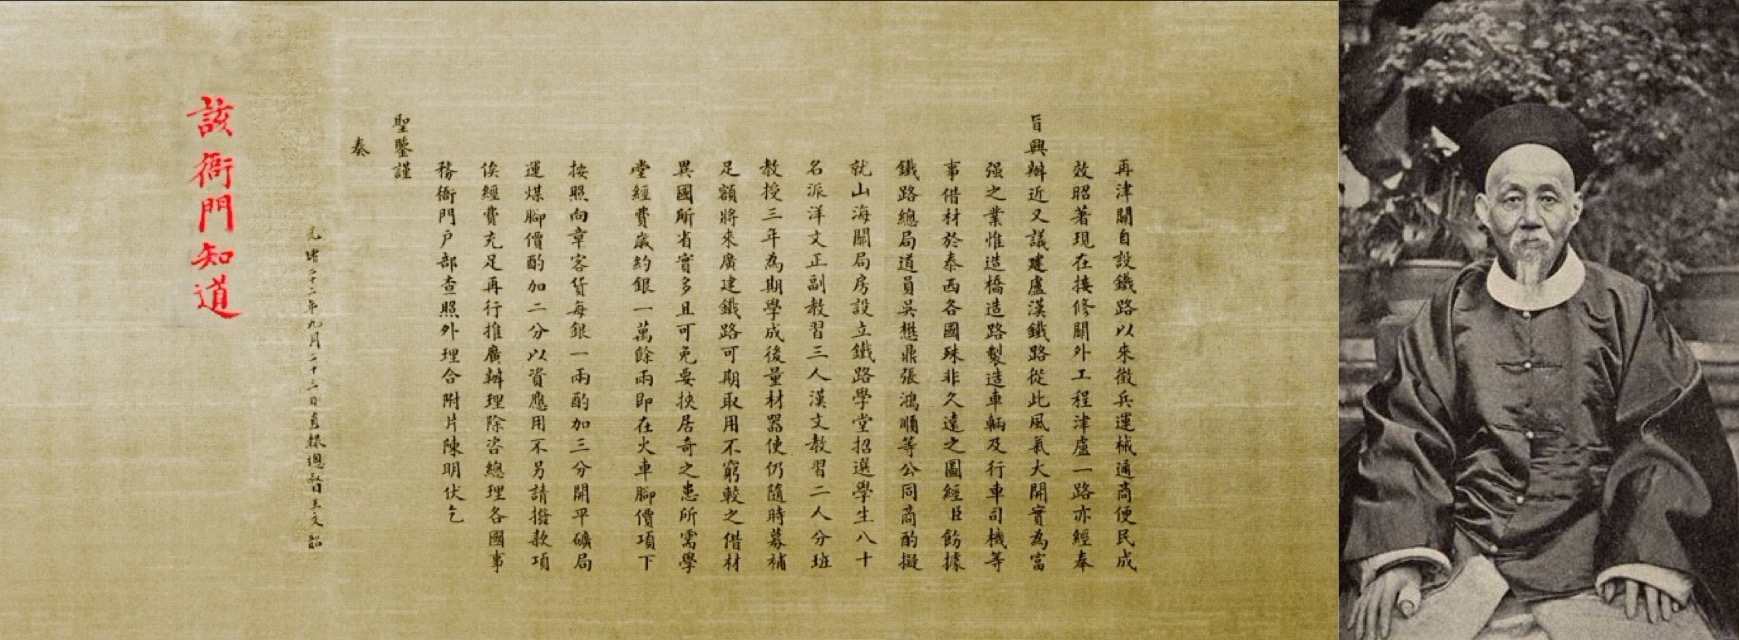 再津關自設鐵路以來徵兵運械通商便民成
效昭著現在接修關外工程津盧一路亦經奉
旨興辦近又議建盧漢鐵路從此風氣大開實為富
强之業惟造橋造路製造車輛及行車司機等
事借材於泰西各國殊非久遠之圖經臣飭據
鐵路總局道員吳懋鼎張鴻順等公同商酌擬
就山海關局房設立鐵路學堂招選學生八十
名派洋文正副教習三人漢文教習二人分班
教授三年為期學成後量材器使仍隨時募補
足額將來廣建鐵路可期取用不窮較之借材
異國所省實多且可免要挾居奇之患所需學
堂經費歲約銀一萬餘兩即在火車腳價項下
按照向章客貨每銀一兩酌加三分開平礦局
運煤腳價酌加二分以資應用不另請撥款項
俟經費充足再行推廣辦理除咨總理各國事
務衙門戶部查照外理合附片陳明伏乞
聖鑒謹
奏
光緒二十二年九月二十二日直隸總督王文韶
該衙門知道